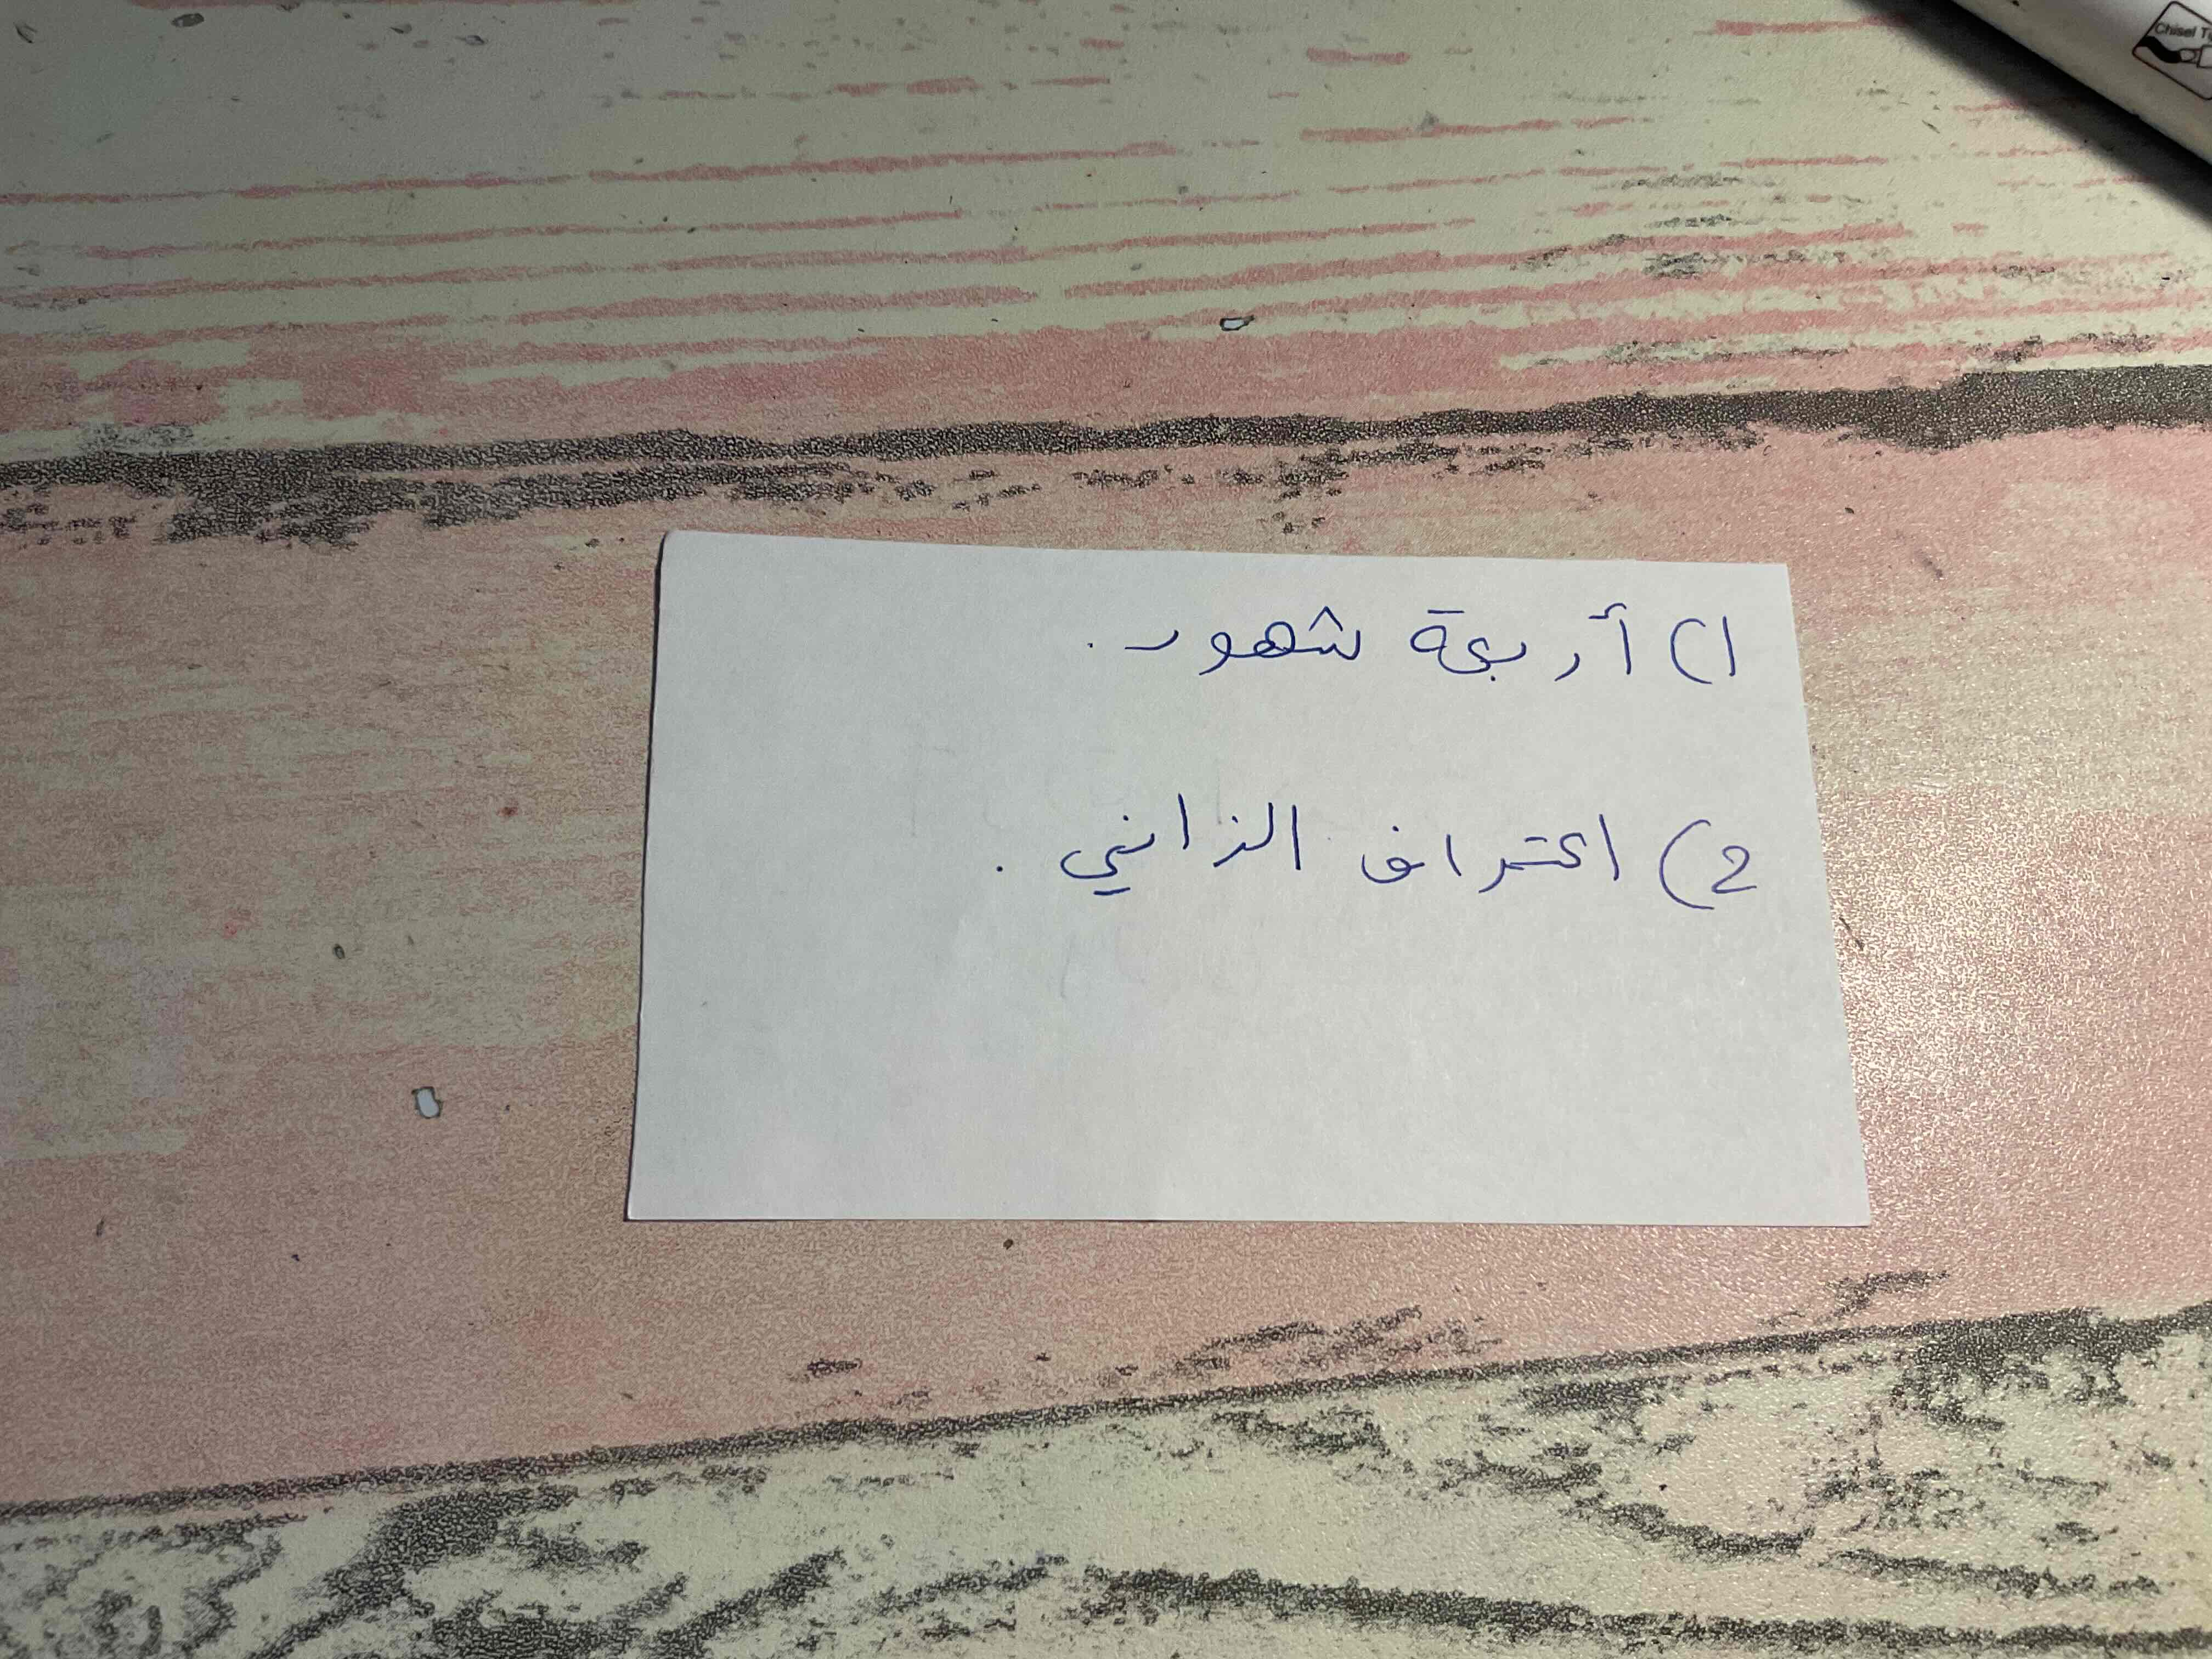 Chisel Ti
1) أربعة شهور.
2) اعتراف الزاني.